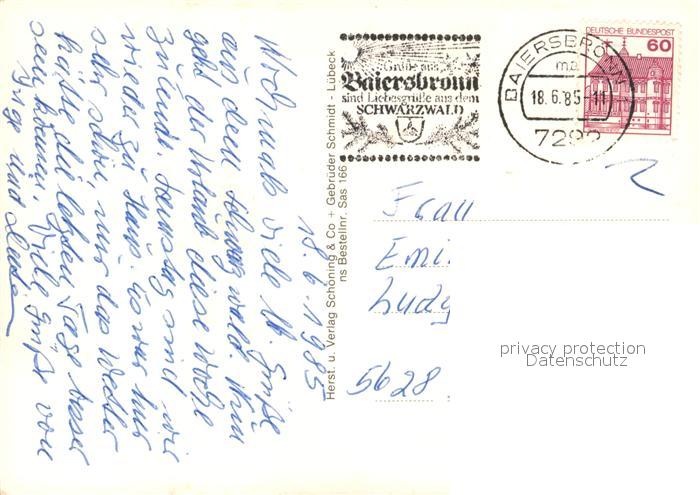 18.6.1985
Nochmals viele lb. Grüße
aus dem Schwarzwald. Nun
geht der Urlaub diese Woche
zu Ende. Samstag sind wir
wieder zu Haus. Es war hier
sehr schön, nur das Wetter
hätte die letzten Tage besser
sein können. Viele Grüße von
und
Herst. u. Verlag Schöning & Co + Gebrüder Schmidt - Lübeck
ns Bestellnr. Sas 166
Grüße aus
Baiersbronn
sind Liebesgrüße aus dem
SCHWARZWALD
BAIERSBRONN
ma
18.6.85-11
7292
DEUTSCHE BUNDESPOST
60
Frau
Emi
Ludg
5628
privacy protection
Datenschutz